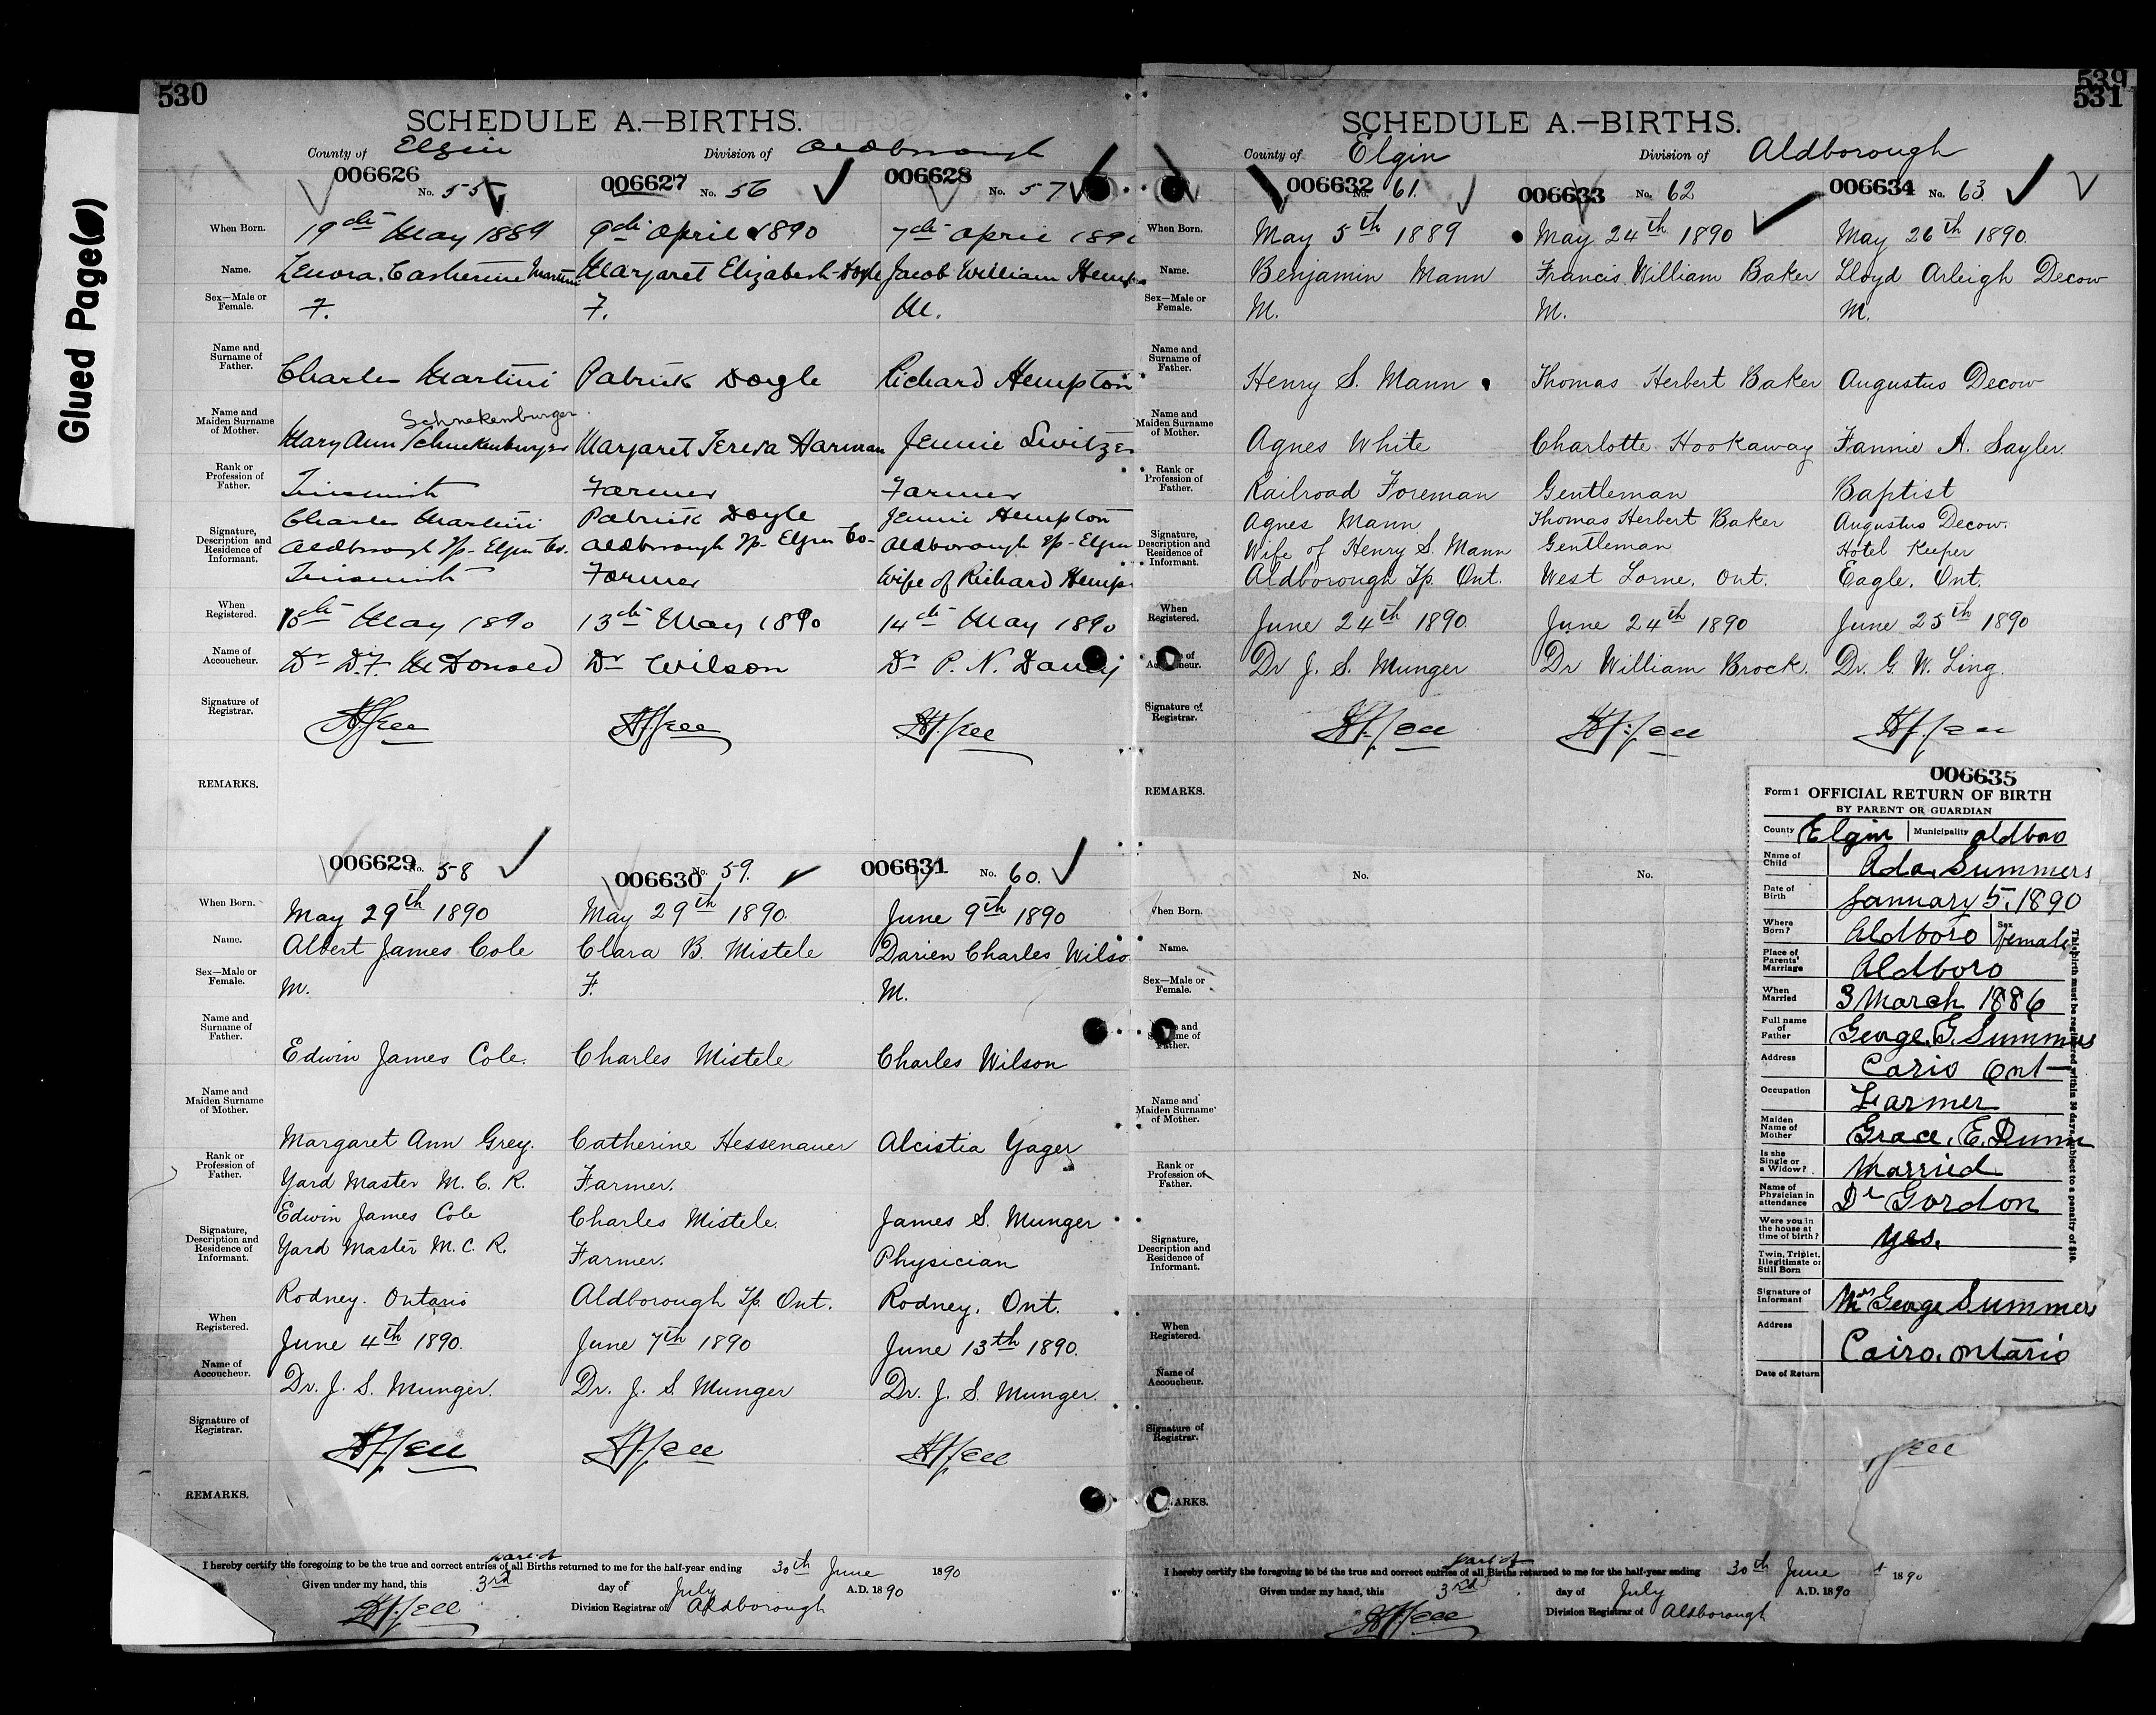 Glued Page(s)
530
SCHEDULE A.—BIRTHS.
County of Elgin Division of Aldborough
006626 No. 55 006627 No. 56 006628 No. 57
When Born. 19th May 1889 9th April 1890 7th April 189
Name. Lenora Catherine Martini Margaret Elizabeth Doyle Jacob William Hemp
Sex—Male or Female. F. F. M.
Name and Surname of Father. Charles Martini Patrick Doyle Richard Hempton
Schnekenburger
Name and Maiden Surname of Mother. Mary Ann Schnekenburger Margaret Teresa Harman Jennie Switzer
Rank or Profession of Father. Tinsmith Farmer Farmer
Signature, Description and Residence of Informant. Charles Martini Patrick Doyle Jennie Hempton
Aldborough Tp- Elgin Co. Aldborough Tp- Elgin Co- Aldborough Tp- Elgin
Tinsmith Farmer Wife of Richard Hemp
When Registered. May 1890 13th May 1890 14th May 1890
Name of Accoucheur. Dr D.F. McDonald Dr Wilson Dr P. N. Davey
Signature of Registrar.
REMARKS.
006629 No. 58 006630 No. 59. 006631 No. 60.
When Born. May 29th 1890 May 29th 1890. June 9th 1890
Name. Albert James Cole Clara B. Mistele Darien Charles Wilso
Sex—Male or Female. M. F. M.
Name and Surname of Father. Edwin James Cole. Charles Mistele Charles Wilson
Name and Maiden Surname of Mother. Margaret Ann Grey. Catherine Hessenauer Alcistia Yager
Rank or Profession of Father. Yard Master M. C. R. Farmer.
Signature, Description and Residence of Informant. Edwin James Cole Charles Mistele. James S. Munger
Yard Master M. C. R. Farmer. Physician
Rodney. Ontario Aldborough Tp. Ont. Rodney, Ont.
When Registered. June 4th 1890. June 7th 1890 June 13th 1890.
Name of Accoucheur. Dr. J. S. Munger. Dr. J. S. Munger Dr. J. S. Munger.
Signature of Registrar.
REMARKS.
part of
I hereby certify the foregoing to be the true and correct entries of all Births returned to me for the half-year ending 30th June 1890
Given under my hand, this 3rd day of July A.D. 1890
Division Registrar of Aldborough
539
531
SCHEDULE A.—BIRTHS.
County of Elgin Division of Aldborough
006632 No. 61. 006633 No. 62 006634 No. 63.
When Born. May 5th 1889 May 24th 1890 May 26th 1890.
Name. Benjamin Mann Francis William Baker Lloyd Arleigh Decow
Sex—Male or Female. M. M. M.
Name and Surname of Father. Henry S. Mann Thomas Herbert Baker Augustus Decow
Name and Maiden Surname of Mother. Agnes White Charlotte Hookaway Fannie A. Sayler.
Rank or Profession of Father. Railroad Foreman Gentleman Baptist
Signature, Description and Residence of Informant. Agnes Mann Thomas Herbert Baker Augustus Decow.
Wife of Henry S. Mann Gentleman Hotel Keeper
Aldborough Tp. Ont. West Lorne, Ont. Eagle, Ont.
When Registered. June 24th 1890. June 24th 1890 June 25th 1890
Name of Accoucheur. Dr J. S. Munger Dr William Brock. Dr. G. W. Ling.
Signature of Registrar.
REMARKS.
No. No.
When Born.
Name.
Sex—Male or Female.
Name and Surname of Father.
Name and Maiden Surname of Mother.
Rank or Profession of Father.
Signature, Description and Residence of Informant.
When Registered.
Name of Accoucheur.
Signature of Registrar.
REMARKS.
006635
Form 1 OFFICIAL RETURN OF BIRTH
BY PARENT OR GUARDIAN
County Elgin Municipality Aldboro
Name of Child Ada Summers
Date of Birth January 5, 1890
Where Born? Aldboro Sex female
Place of Parents' Marriage Aldboro
When Married 3 March 1886
Full name of Father George G. Summers
Address Cario Ont—
Occupation Farmer
Maiden Name of Mother Grace E. Dunn
Is she Single or a Widow? Married
Name of Physician in attendance Dr Gordon
Were you in the house at time of birth? Yes.
Twin, Triplet, Illegitimate or Still Born
Signature of Informant Mrs George Summers
Address Cairo, Ontario
Date of Return
This birth must be registered within 30 days, subject to a penalty of $10.
part of
I hereby certify the foregoing to be the true and correct entries of all Births returned to me for the half-year ending 30th June 1890
Given under my hand, this 3rd day of July A.D. 1890
Division Registrar of Aldborough